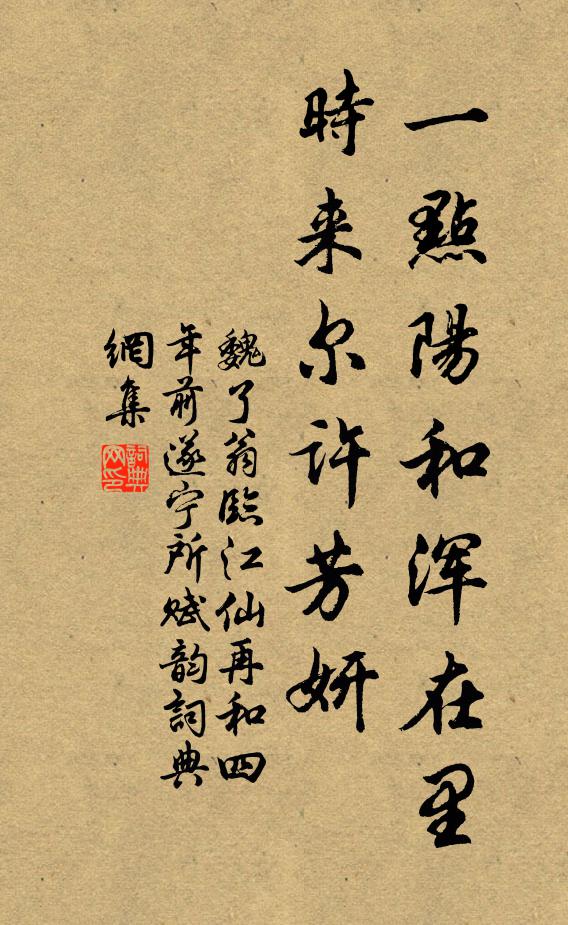 一點陽和浑在里
時来尔许芳妍
魏了翁臨江仙再和四
年前遂宁所赋韵詞典
網集
詞典
网印